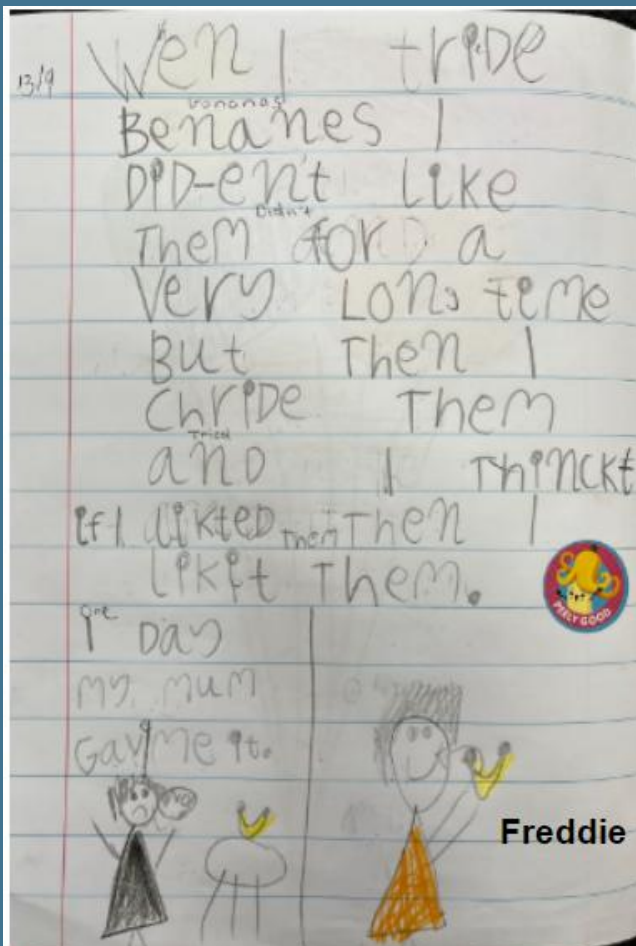 13/9
Wen I tride
bananas
Benanes I
DiD-en't like
Didn't
Them for a
Very Long time
But Then I
ChriDe Them
Tried
anD I Thinckt
if I likteD Them Then I
likit Them.
PEELY GOOD
1 one Day
my mum
Gav me it.
Freddie